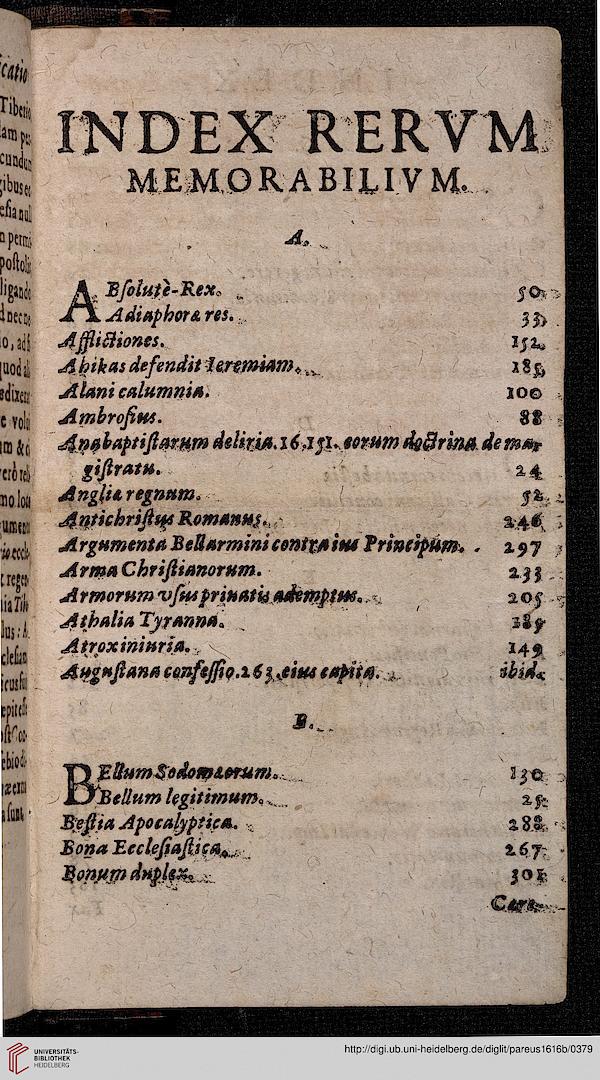 INDEX RERVM
MEMORABILIVM.
A.
ABſolutè-Rex. 50
Adiaphoræ res. 33
Afflictiones. 152
Ahikas defendit Ieremiam. 185
Alani calumnia. 100
Ambroſius. 88
Anabaptiſtarum deliria. 16. 151. eorum doctrina de ma-
giſtratu. 24
Angliæ regnum. 52
Antichriſtus Romanus. 246
Argumenta Bellarmini contra ius Principum. 297
Arma Chriſtianorum. 233
Armorum vſus priuatis ademptus. 205
Athalia Tyranna. 189
Atrox iniuria. 149
Auguſtana confeſſio. 263. eius capita. ibid.
B.
BEllum Sodomæorum. 130
Bellum legitimum. 25
Beſtia Apocalyptica. 288
Bona Eccleſiaſtica. 267
Bonum duplex. 301
UNIVERSITÄTS-
BIBLIOTHEK
HEIDELBERG
http://digi.ub.uni-heidelberg.de/diglit/pareus1616b/0379